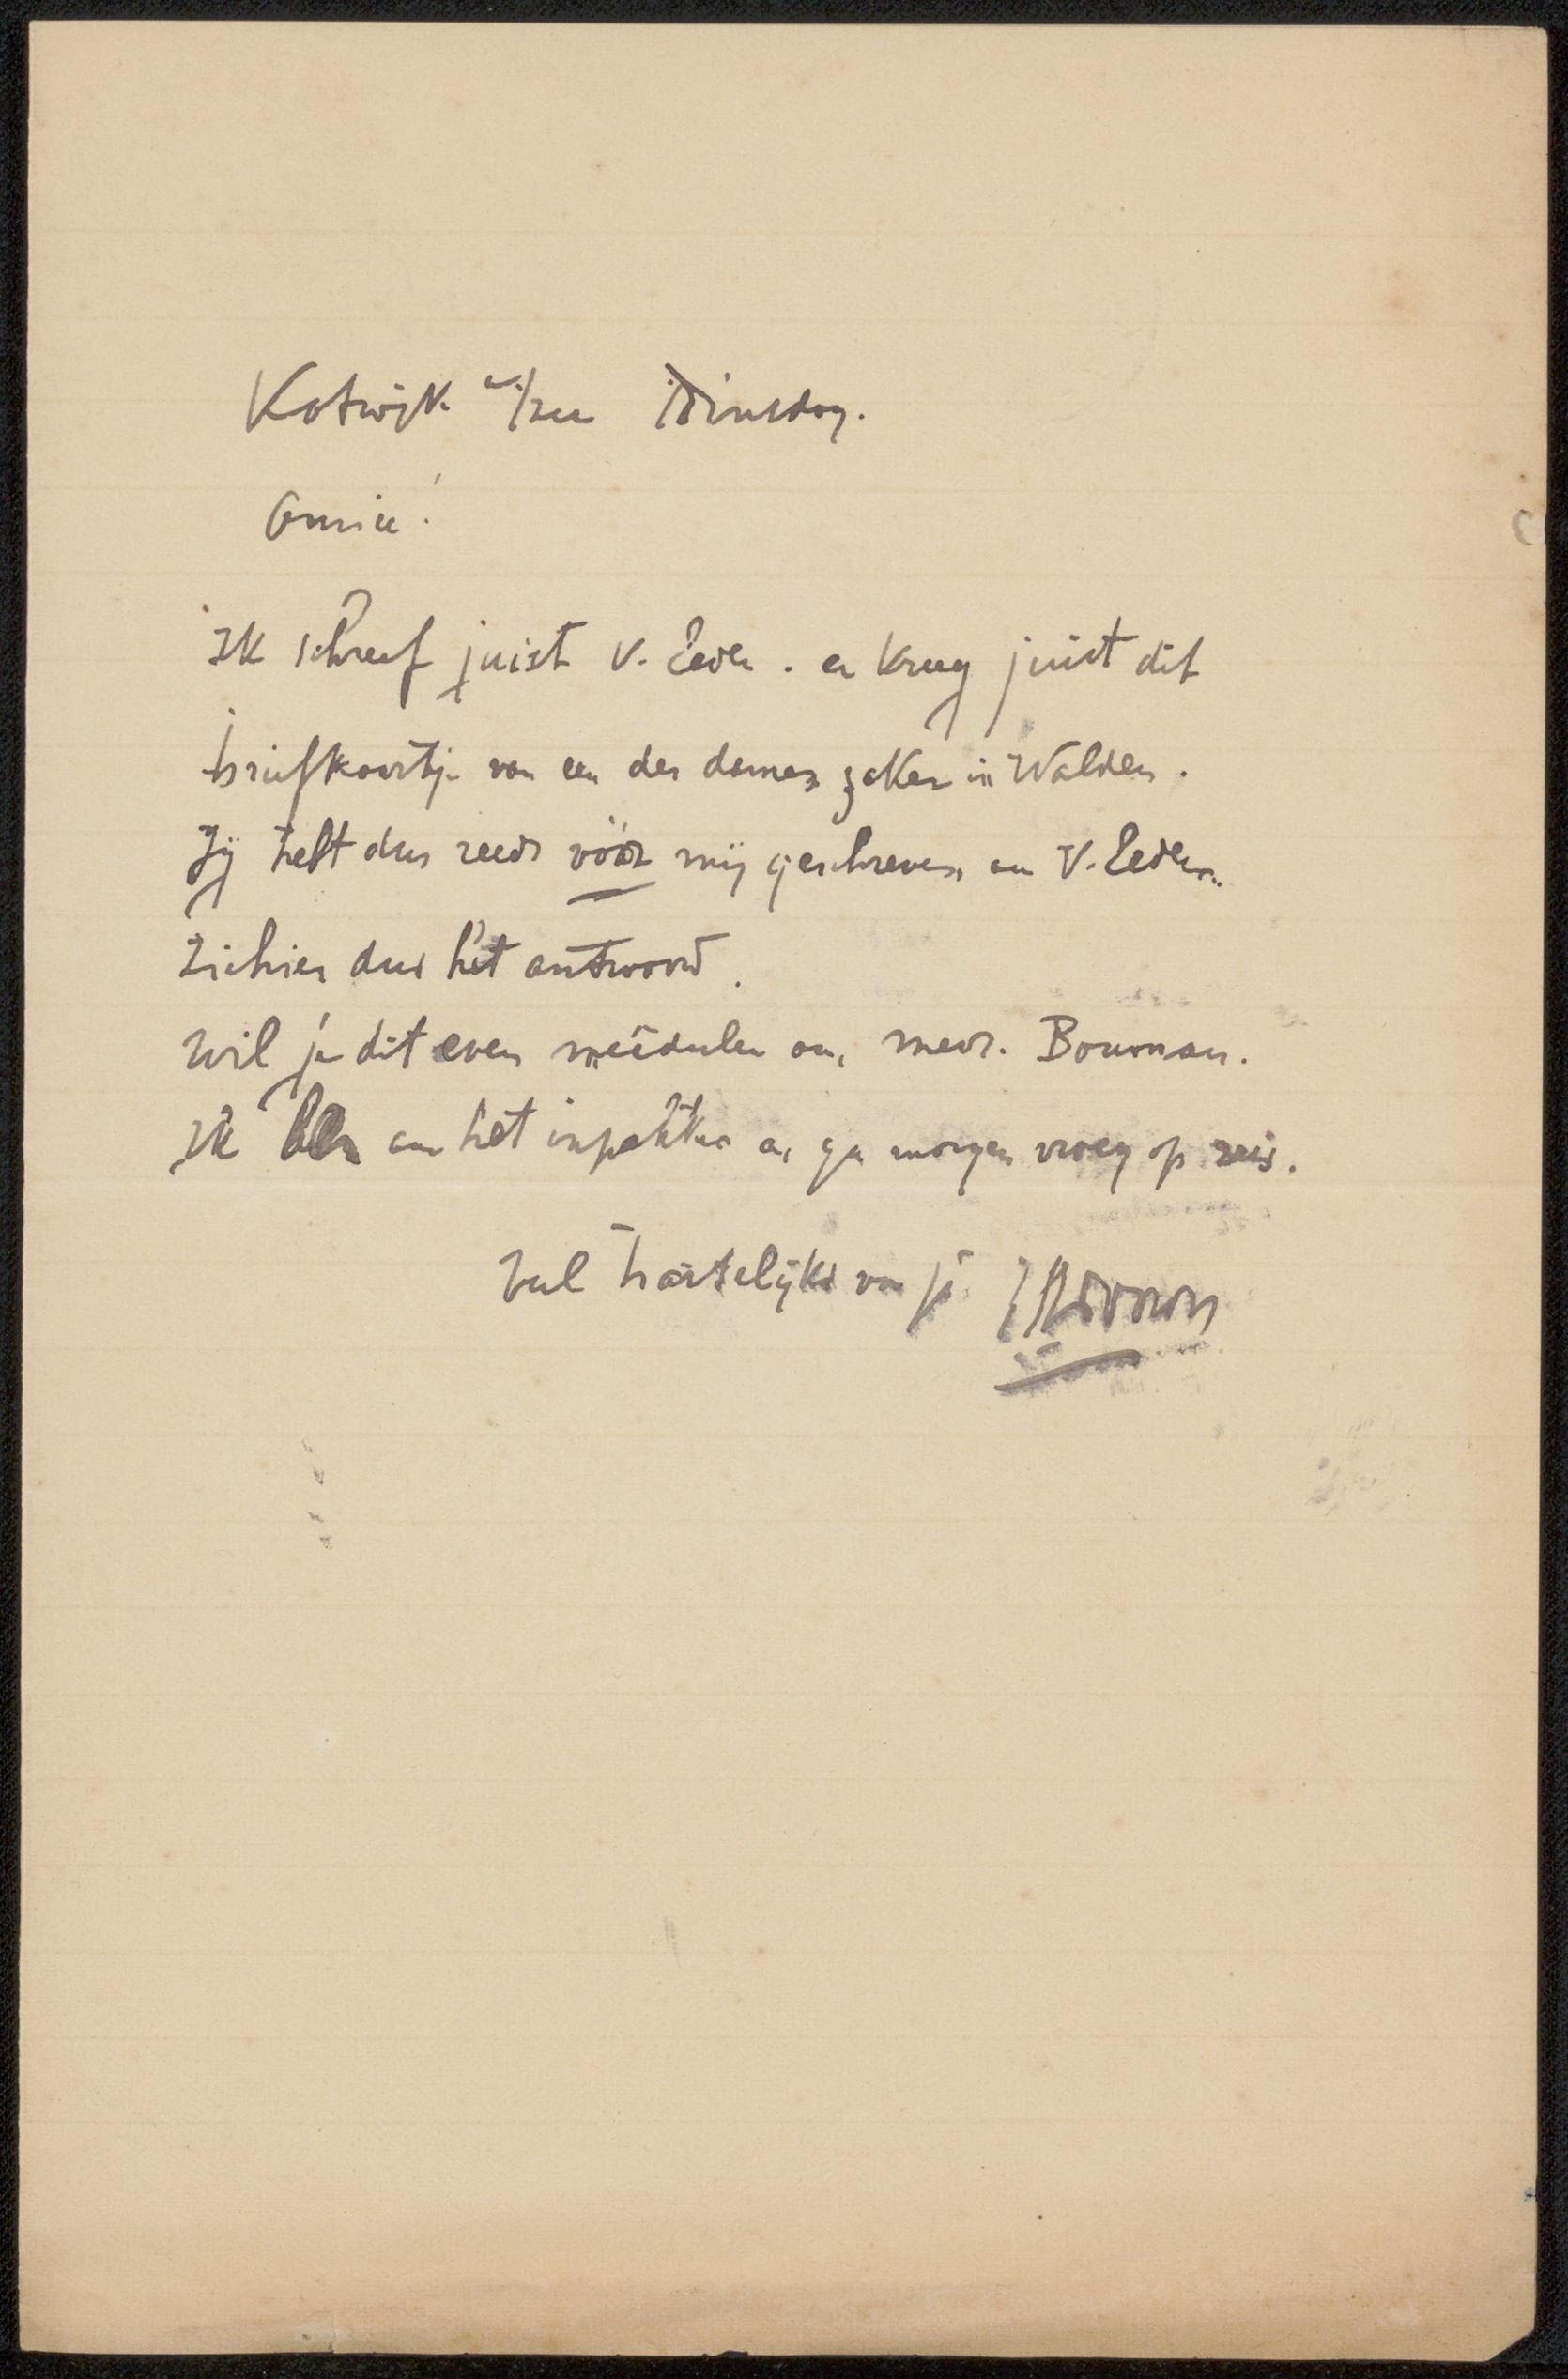 Katwijk a/zee Dinsdag.
Amice!
Ik schreef juist V. Eeden. en kreeg juist dit
briefkaartje van een der dames zaken in Walden.
Jij hebt dus reeds vóór mij geschreven aan V. Eeden.
Ziehier dus het antwoord.
Wil je dit even meêdeelen aan mevr. Bouman.
Ik ben aan het inpakken en ga morgen vroeg op reis.
Veel hartelijks van je